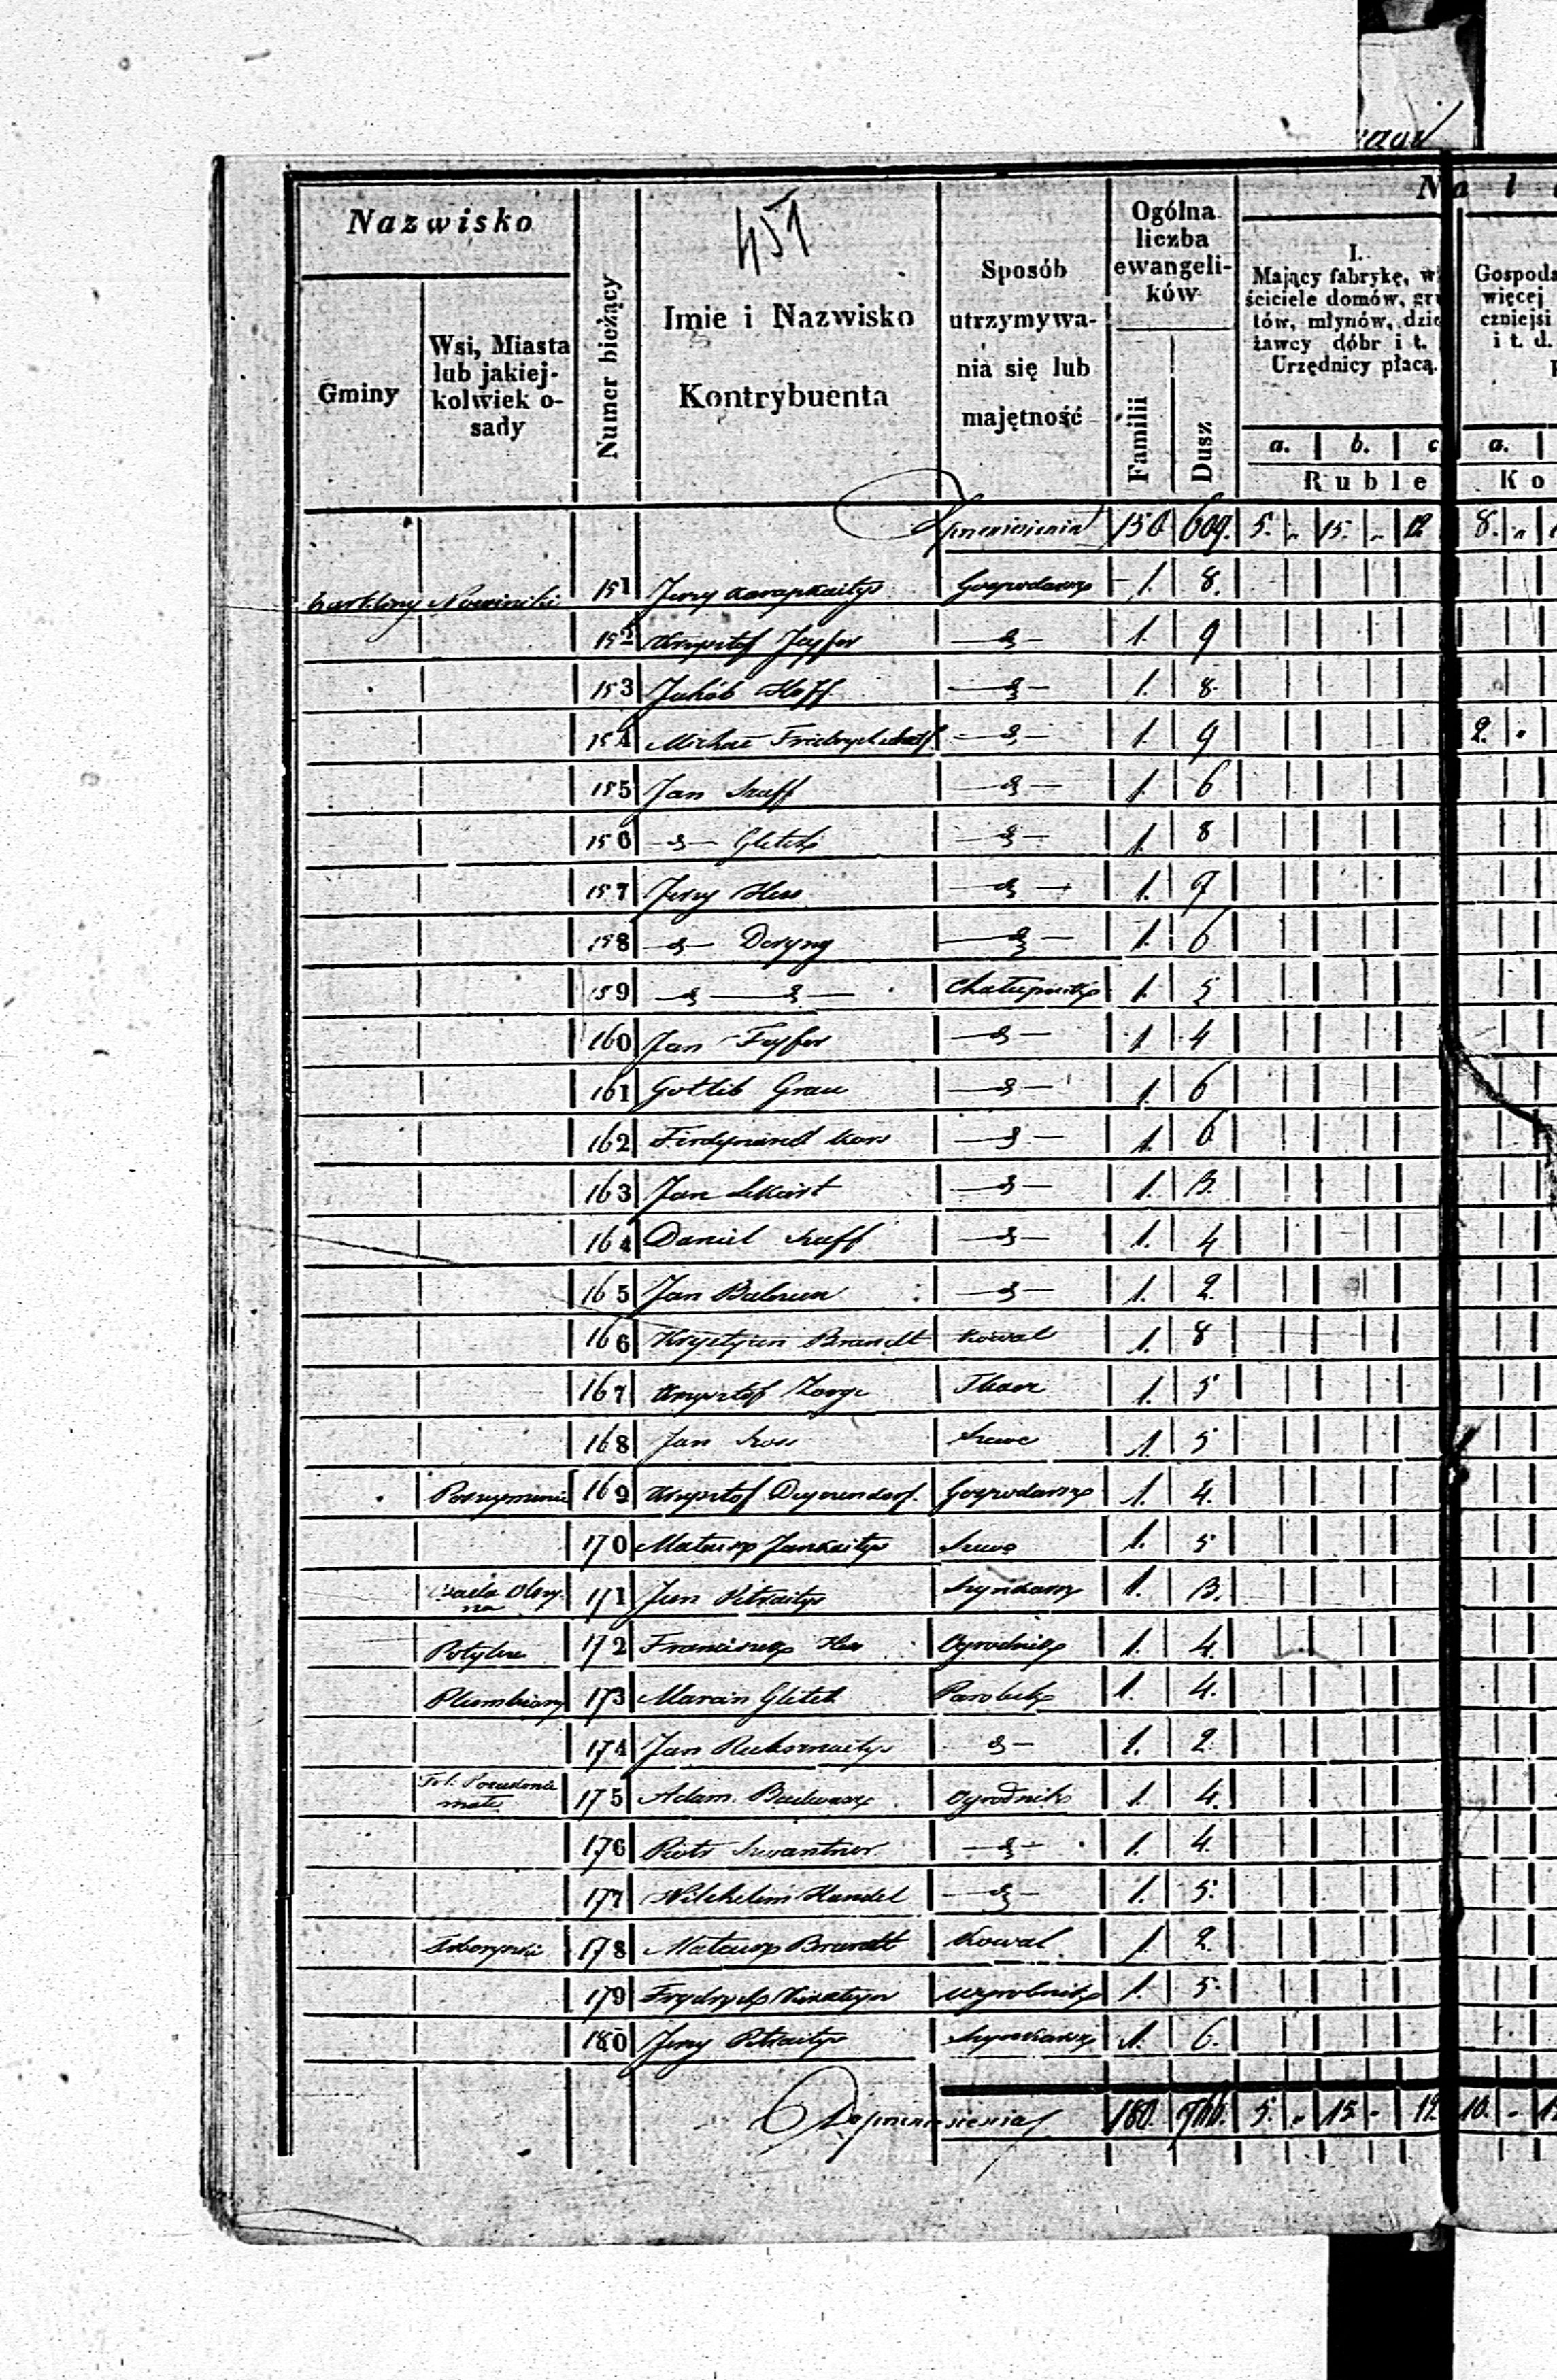 451
Nazwisko
Gminy
Wsi, Miasta lub jakiej-kolwiek o-sady
Numer bieżący
Imie i Nazwisko
Kontrybuenta
Sposób utrzymywa-nia się lub majętność
Ogólna liczba ewangeli-ków
Familii
Dusz
I.
Mający fabrykę, w
ściciele domów, gru
tów, młynów, dzie
żawcy dóbr i t.
Urzędnicy płacą.
a. b. c
Ruble
Gospoda
więcej
czniejsi
i t. d.
a.
Ko
Z przeniesienia 150 609. 5. " 15. " 12 8. "
Nowiniki 151 Jerzy Karapkaitys Gospodarz 1. 8.
152 Krzysztof Feyfer -d- 1. 9
153 Jakób Hoff -d- 1. 8.
154 Michał -d- 1. 9 2. "
155 Jan Szaff -d- 1. 6
156 -d- Gletch -d- 1. 8
157 Jerzy Hess -d- 1. 9
158 -d- Deryng -d- 1. 6
159 -d- -d- Chałupnik 1. 5
160 Jan Feyfer -d- 1 4
161 Gottlib Grau -d- 1 6
162 Ferdynand -d- 1. 6
163 Jan -d- 1. 3.
164 Daniel Szaff -d- 1. 4
165 Jan -d- 1. 2
166 Krystyan Brandt Kowal 1. 8
167 Krzysztof Zorge Tkacz 1. 5
168 Jan Szos Szewc 1. 5
169 Krzysztof Deyerendorf. Gospodarz 1. 4.
170 Mateusz Jankaitys Szewc 1. 5
171 Jan Petraitys Szynkarz 1. 3.
Potylcze 172 Franciszek Hess Ogrodnik 1. 4.
173 Marcin Gletch Parobek 1. 4.
174 Jan -d- 1. 2
Fol. małe 175 Adam Ogrodnik 1. 4.
176 Piotr Szwantner -d- 1. 4.
177 Wilchelm Handel -d- 1. 5.
178 Mateusz Brandt Kowal 1. 2.
179 Frydryk Wyrobnik 1. 5.
180 Jerzy Petraitys Szynkarz 1. 6.
Do przeniesienia 180. 766. 5. " 15 " 12. 10. "